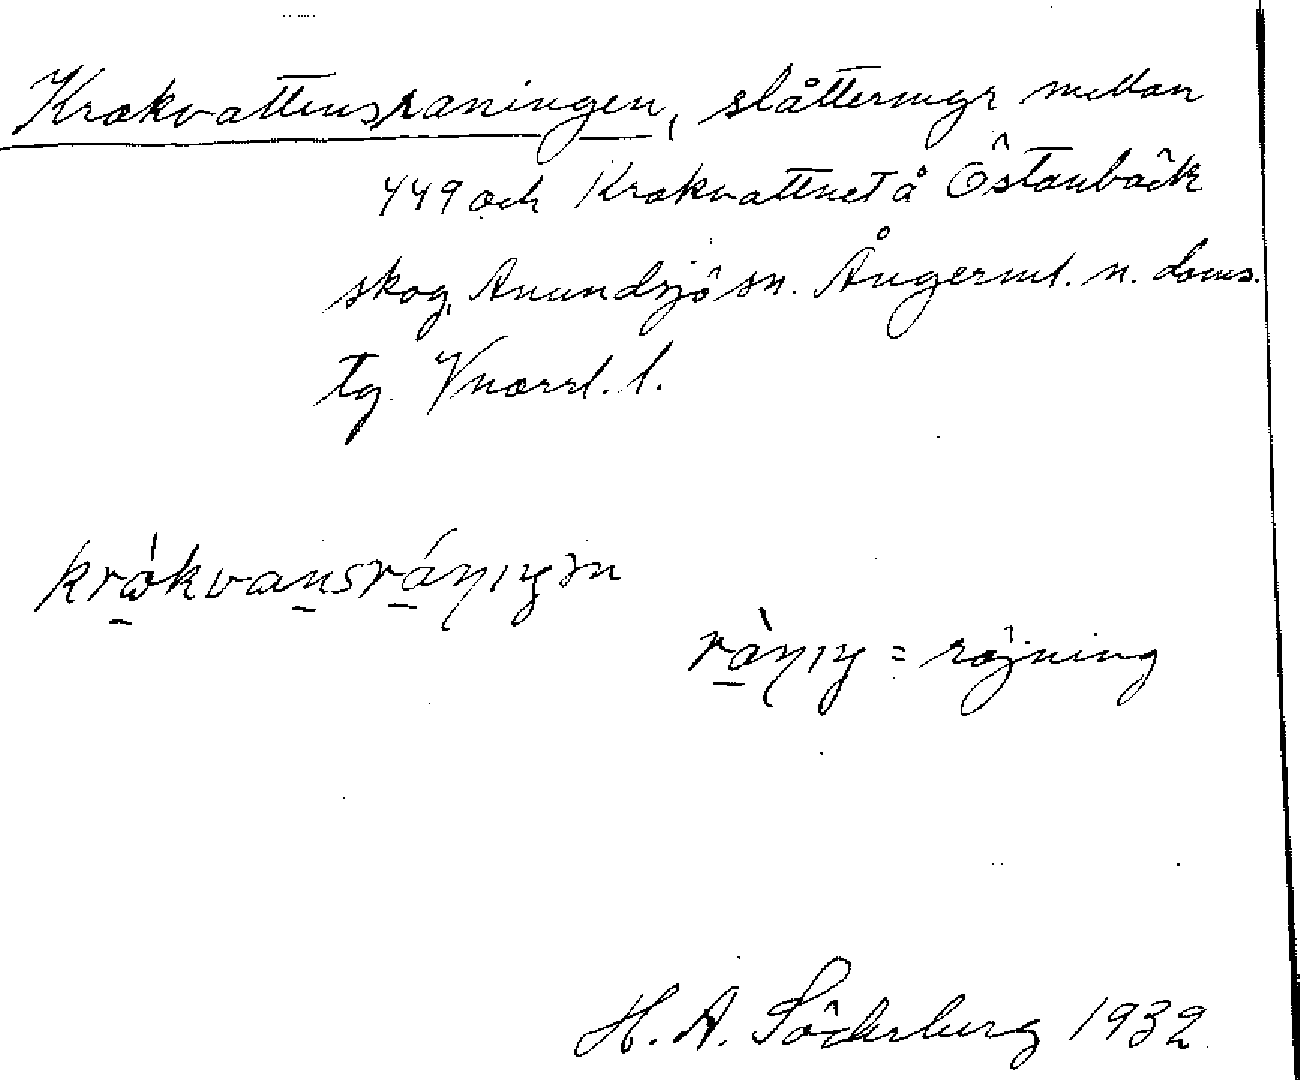 Krokvattensraningen, slåttermyr mellan
449 och Krokvattnet å Östanbäck
skog, Anundsjö sn. Ångerml. n. doms.
tg. Vnorrl. l.
= röjning
H. A. Söderberg 1932